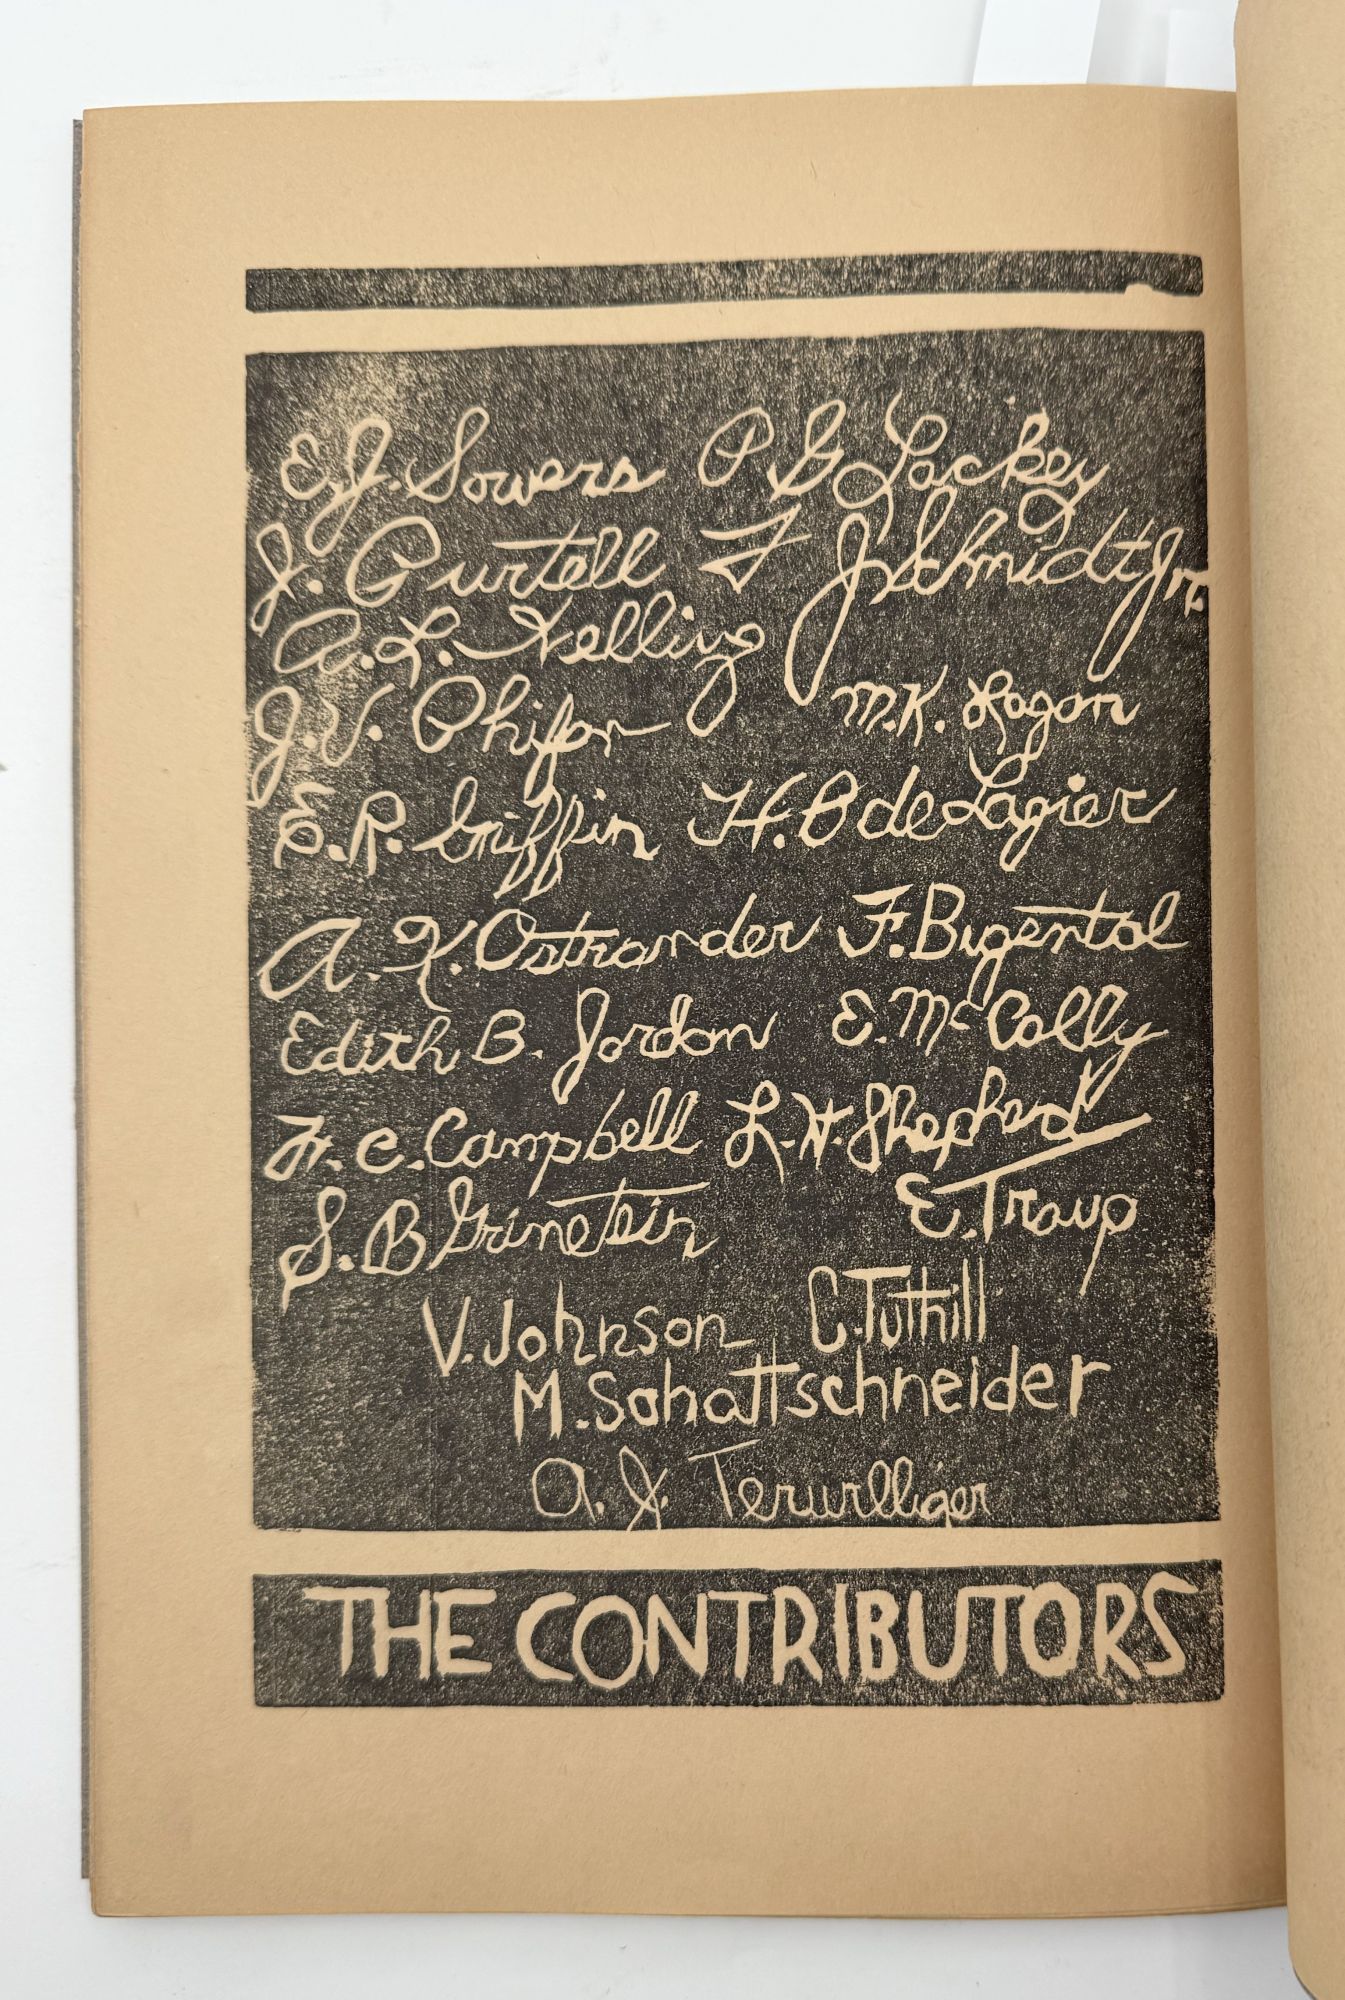 E. J. Sowers P G Lackey
J. Purtell F J Schmidt Jr.
A. L. Kelling
J. V. Phifer M.K. Logan
E. R. Griffin H. B de Lagier
A. K. Ostrander F. Bugental
Edith B. Jordon E. McColly
H. C. Campbell L. H. Shepherd
S. B Grinstein E. Traup
V. Johnson C. Tuthill
M. Schattschneider
A. J. Terwilliger
THE CONTRIBUTORS